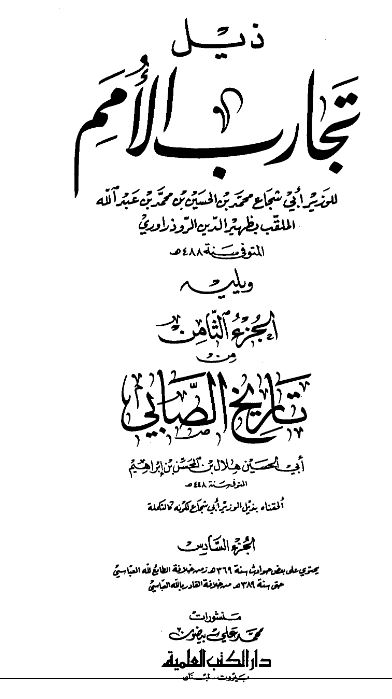 ذيل
تجارب الأمم
للوزير أبي شجاع محمد بن الحسين بن محمد بن عبد الله
الملقب بظهير الدين الروذراوري
المتوفى سنة ٤٨٨ هـ
ويليه
الجزء الثامن
من
تاريخ الصابي
أبي الحسين هلال بن المحسن بن إبراهيم
المتوفى سنة ٤٤٨ هـ
ألحقناه بذيل الوزير أبي شجاع لكونه كالتكملة
الجزء السادس
يحتوي على بعض حوادث سنة ٣٦٩ هـ زمن خلافة الطائع لله العباسي
حتى سنة ٣٨٩ هـ من خلافة القادر بالله العباسي
منشورات
محمد علي بيضون
دار الكتب العلمية
بيروت - لبنان